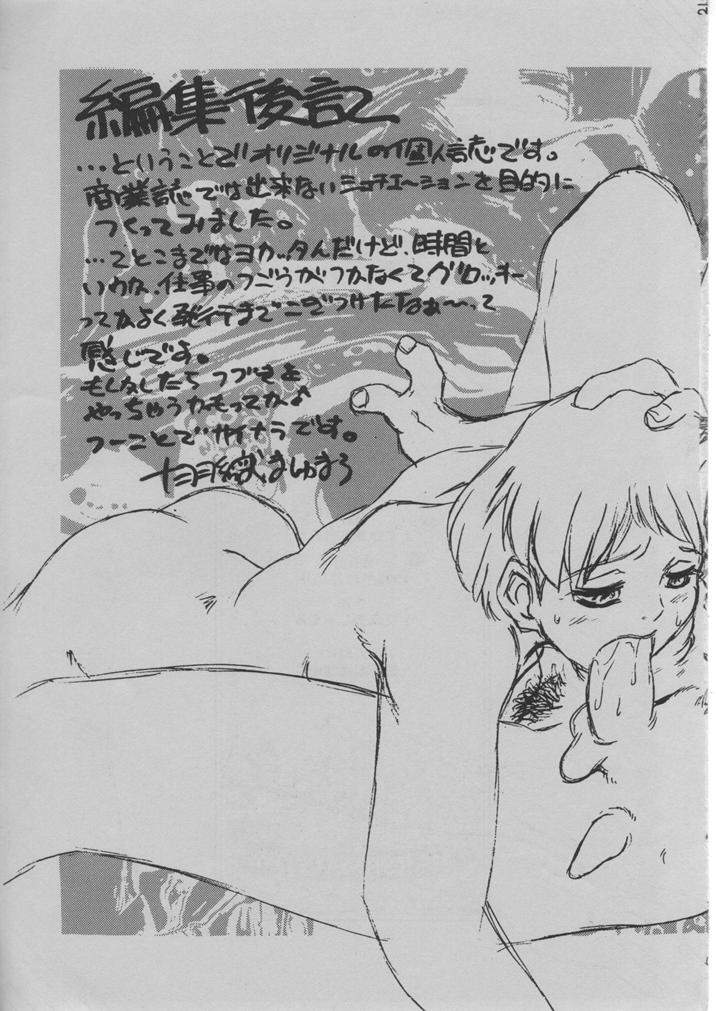 編集後記
…ということでオリジナルの個人誌です。
商業誌では出来ないシュチエーションを目的に
つくってみました。
…てとこまではヨカッタんだけど、時間と
いわれ、仕事のつごうがつかなくてグロッキー
ってかよく発行までこぎつけたなぁ〜って
感じです。
もしかしたらつづきを
やっちゃうかもってかよ
つーことでサイナラです。
21